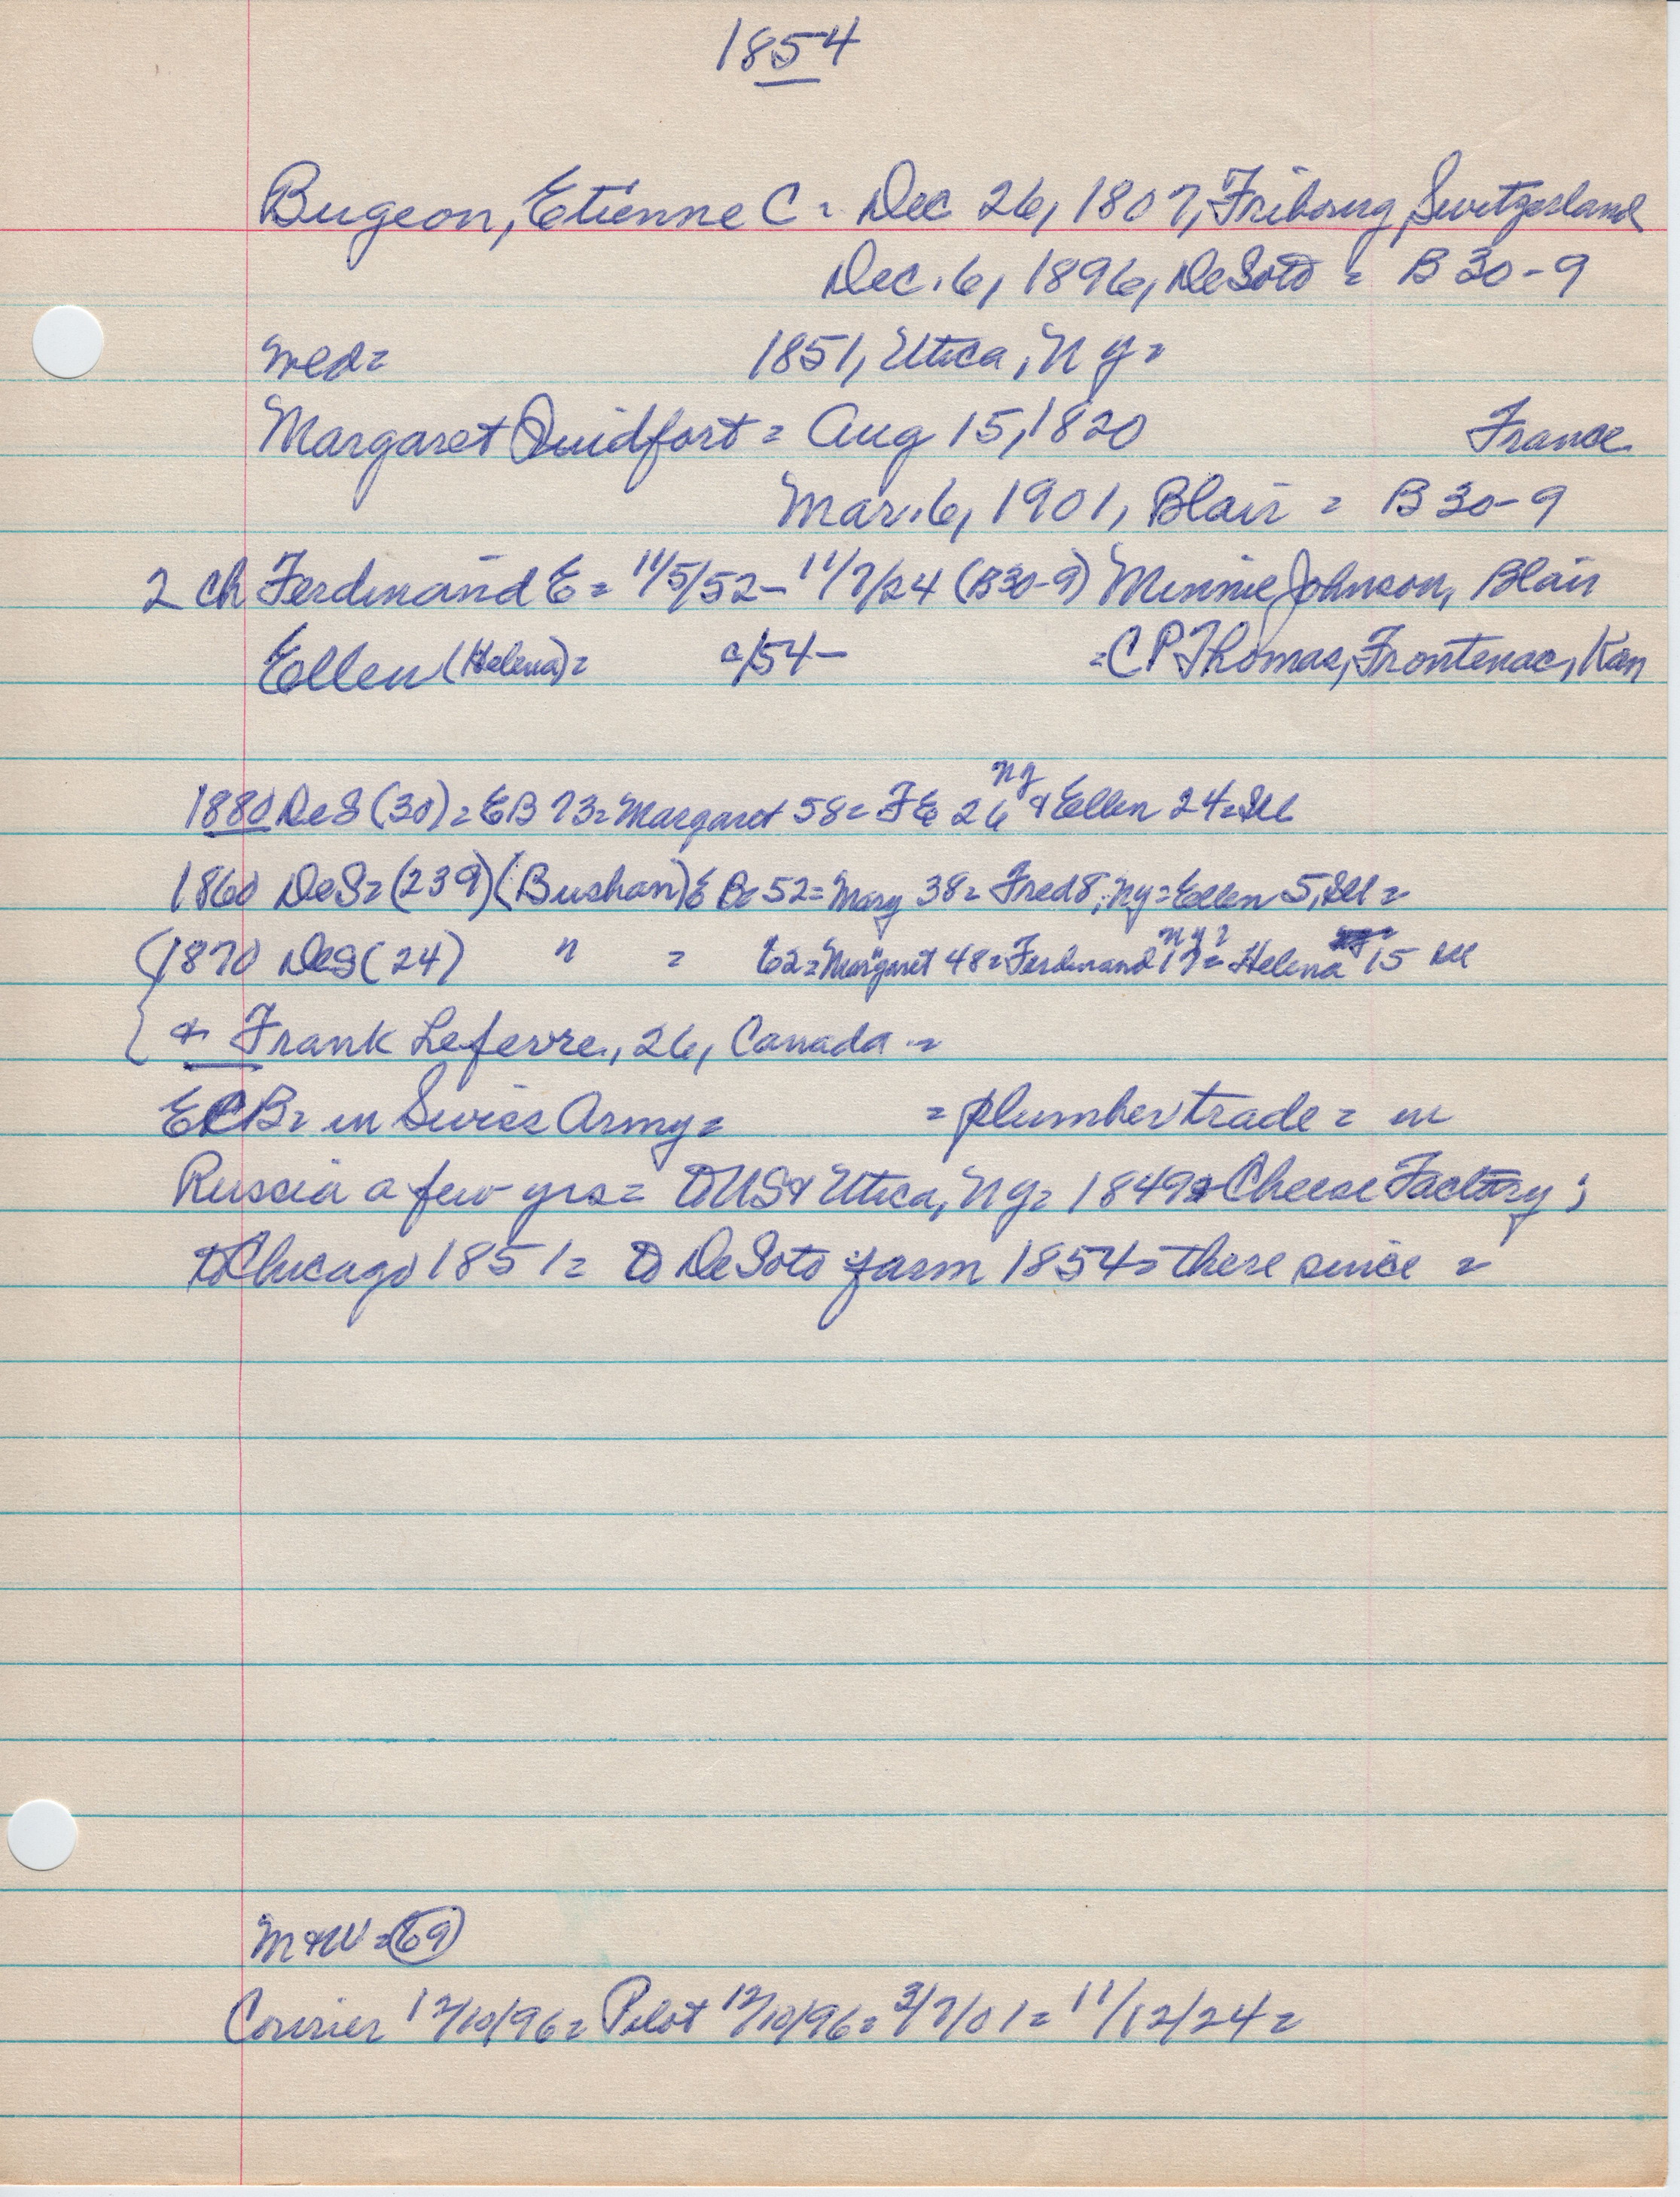 1854
Bugeon, Etienne C = Dec 26, 1807, Fribourg, Switzerland
Dec. 6, 1896, DeSoto = B 30-9
wed= 1851, Utica, NY=
Margaret Quidfort = Aug 15, 1820 France
Mar. 6, 1901, Blair = B 30-9
2 ch Ferdinand E = 11/5/52 - 11/7/24 (B30-9) Minnie Johnson, Blair
Ellen (Helena)= c/54 - =C P Thomas, Frontenac, Kan
NY
1880 DeS (30) = EB 73 = Margaret 58 = F E 26 & Ellen 24 = Ill
1860 DeS = (239) (Bushan) E B 52 = Mary 38 = Fred 8, NY = Ellen 5, Ill =
NY?
(1870 DeS (24) " = 62 = Margaret 48 = Ferdinand 17 = Helena 15 Ill
& Frank Lefevre, 26, Canada =
ECB = in Swiss Army = = plumber trade = in
Russia a few yrs = to US & Utica, NY = 1849 = Cheese Factory;
to Chicago 1851 = to DeSoto farm 1854 = there since =
M & W = 69
Courier 12/10/96 = Pilot 12/10/96 = 3/7/01 = 11/12/24 =